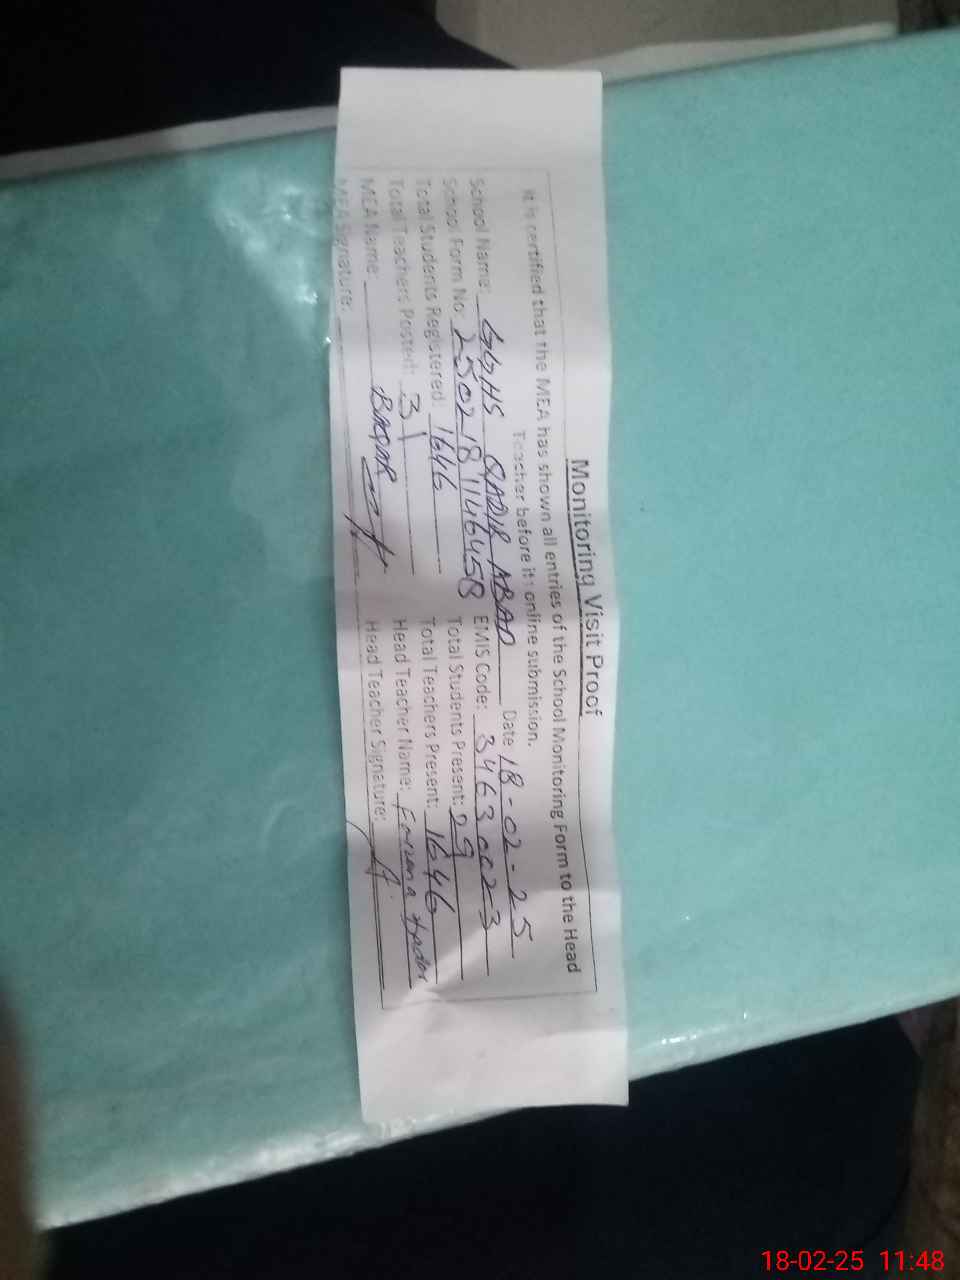 Monitoring Visit Proof
It is certified that the MEA has shown all entries of the School Monitoring Form to the Head
Teacher before its online submission.
School Name: GGHS QADIR ABAD Date 18-02-25
School Form No: 250218 1146458 EMIS Code: 34630023
Total Students Registered: 1646 Total Students Present: 29
Total Teachers Posted: 31 Total Teachers Present: 1646
MEA Name: BAQAR Head Teacher Name: Farzana
MEA Signature: Head Teacher Signature:
18-02-25 11:48